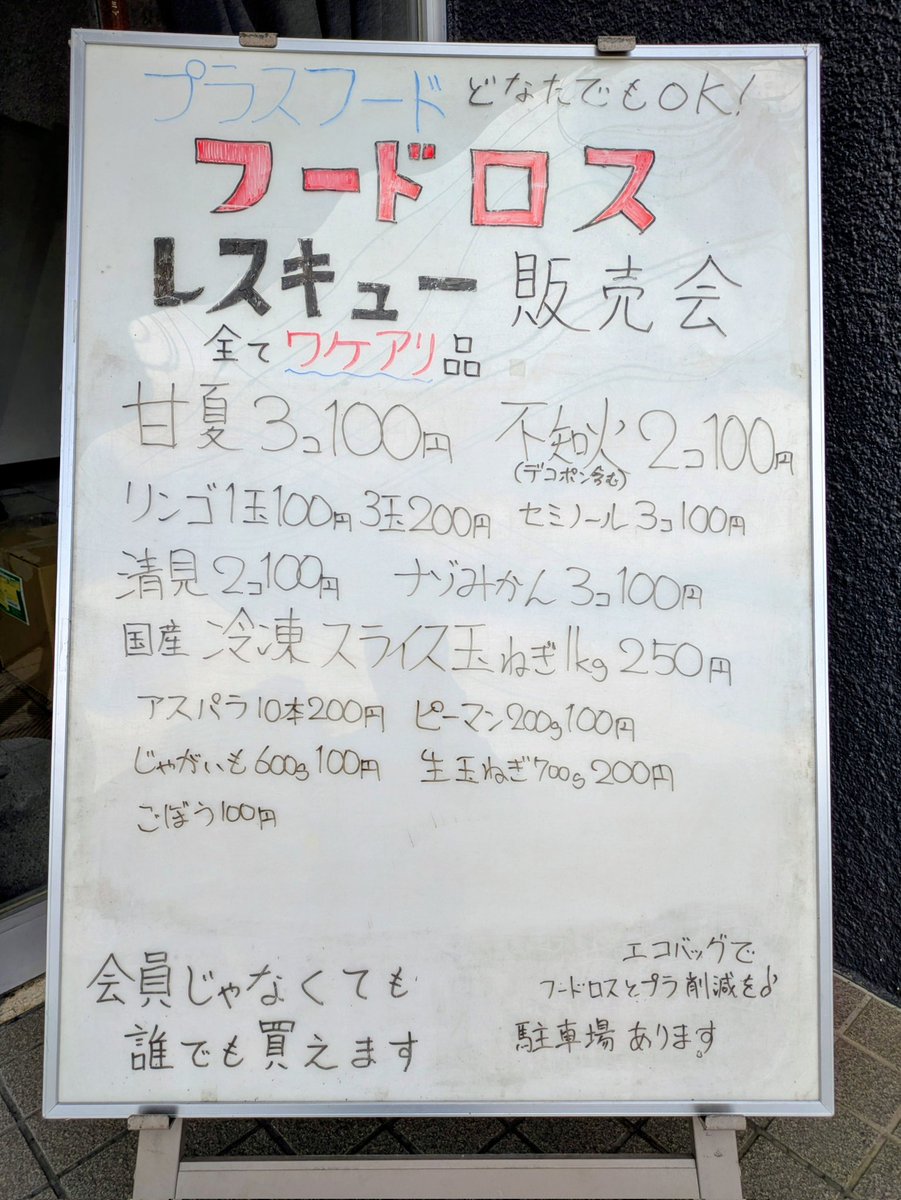 プラスフード どなたでもOK!
フードロス
レスキュー 販売会
全てワケアリ品
甘夏3コ100円 不知火2コ100円
(デコポン含む)
リンゴ1玉100円3玉200円 セミノール3コ100円
清見2コ100円 ナゾみかん3コ100円
国産 冷凍スライス玉ねぎ1kg250円
アスパラ10本200円 ピーマン200g100円
じゃがいも600g100円 生玉ねぎ700g200円
ごぼう100円
会員じゃなくても
誰でも買えます
エコバッグで
フードロスとプラ削減を♪
駐車場あります。